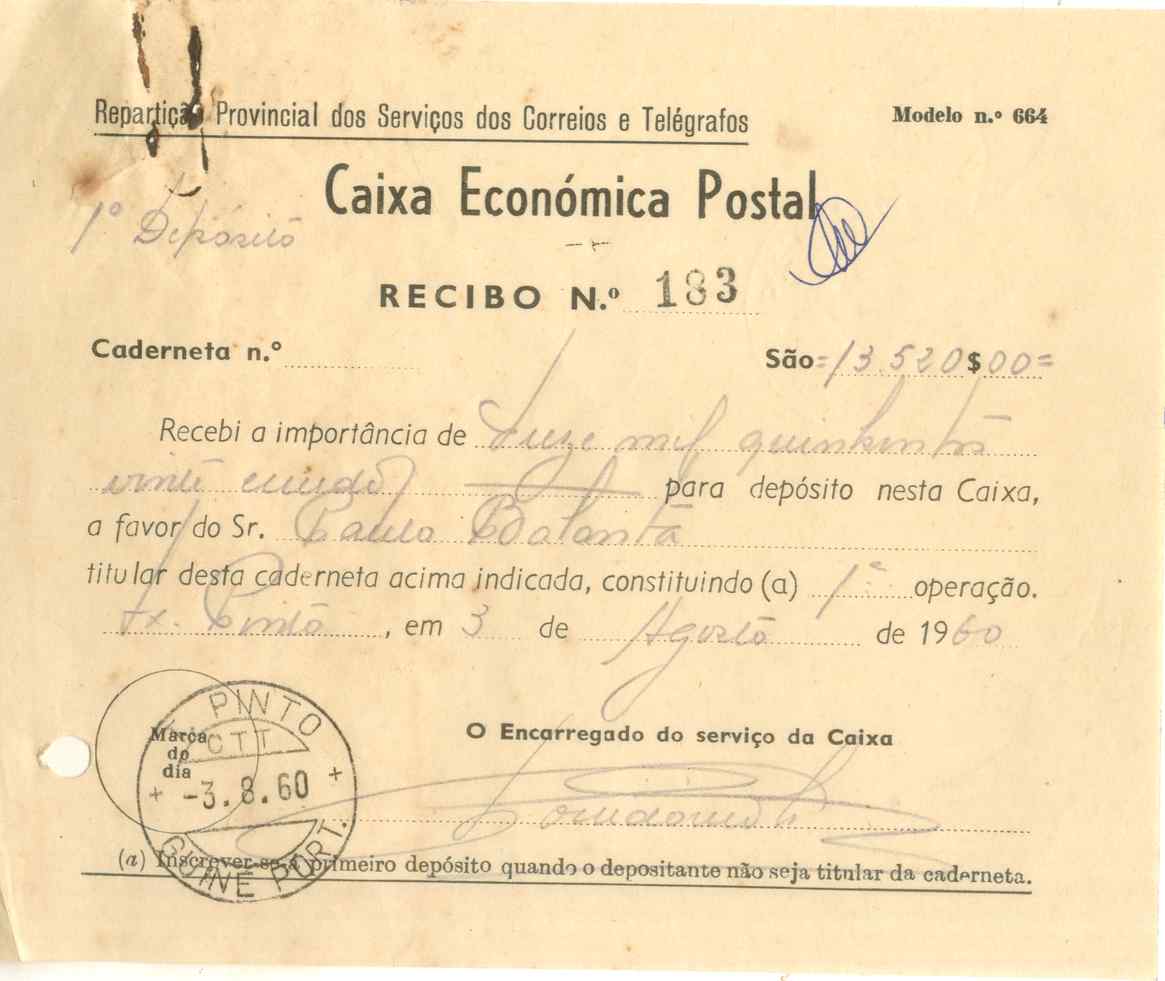 Repartição Provincial dos Serviços dos Correios e Telégrafos
Modelo n.º 664
Caixa Económica Postal
1º Depósito
RECIBO N.º 183
Caderneta n.º
São =13.520$00=
Recebi a importância de treze mil quinhentos
vinte escudos para depósito nesta Caixa,
a favor do Sr. Paulo Balanta
titular desta caderneta acima indicada, constituindo (a) 1ª operação.
Tx. Pinto, em 3 de Agosto de 1960
PINTO
CTT
Marca
do
dia
-3.8.60
GUINÉ PORT.
O Encarregado do serviço da Caixa
(a) Inscrever-se á primeiro depósito quando o depositante não seja titular da caderneta.